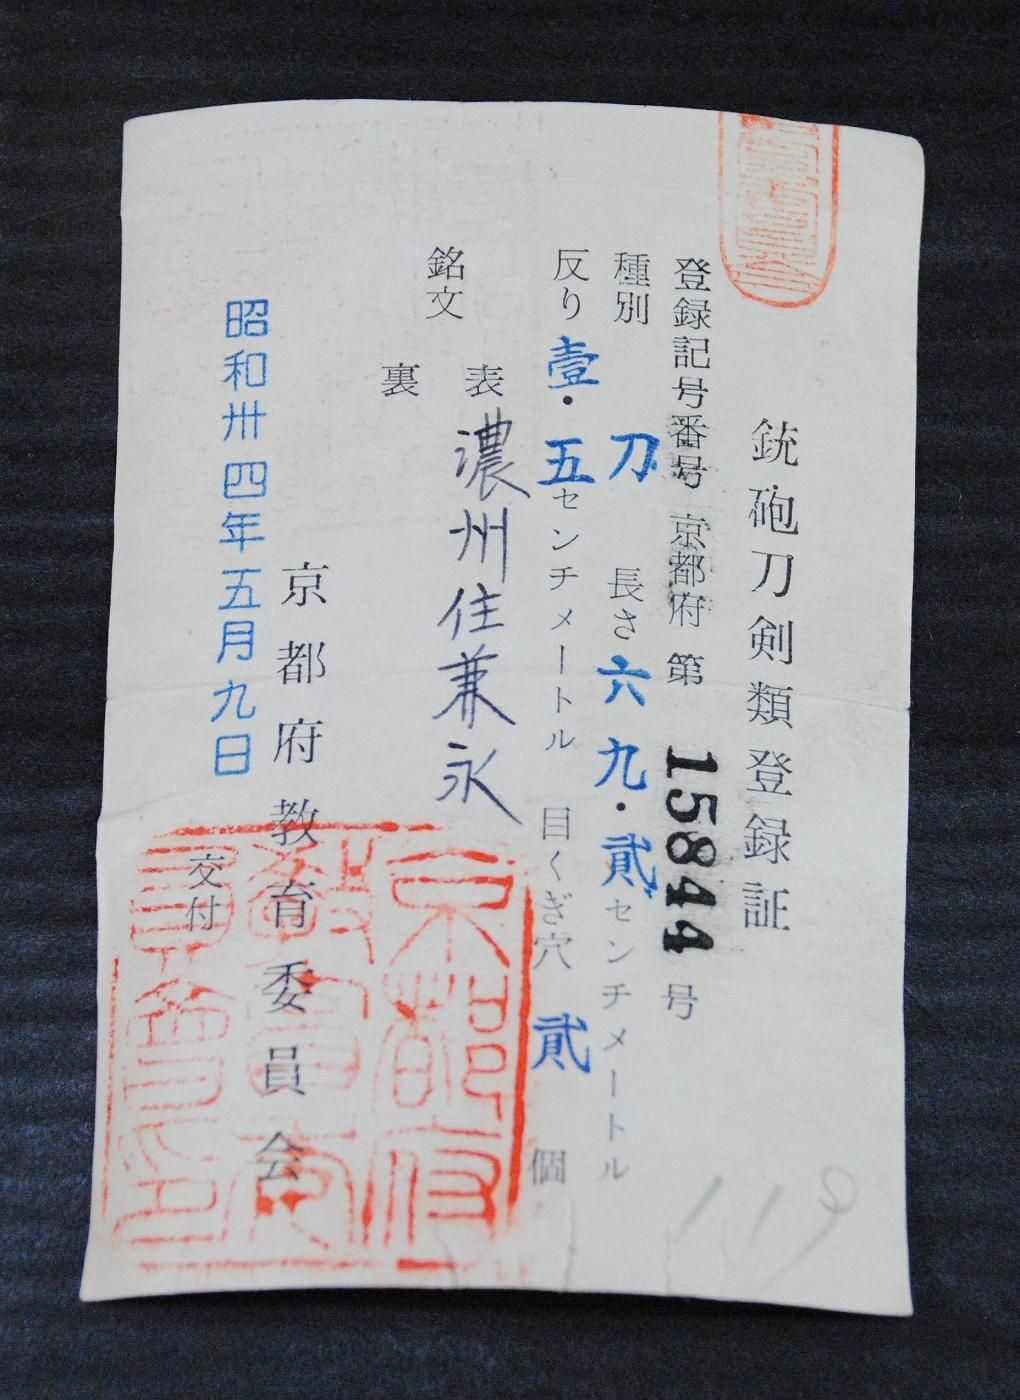 銃砲刀剣類登録証
登録記号番号 京都府 第 15844 号
種別 刀 長さ 六九・貳センチメートル
反り 壹・五センチメートル 目くぎ穴 貳 個
銘文
表 濃州住兼永
裏
京都府教育委員会
昭和卅四年五月九日
交付
京都府
教育委員会印
119